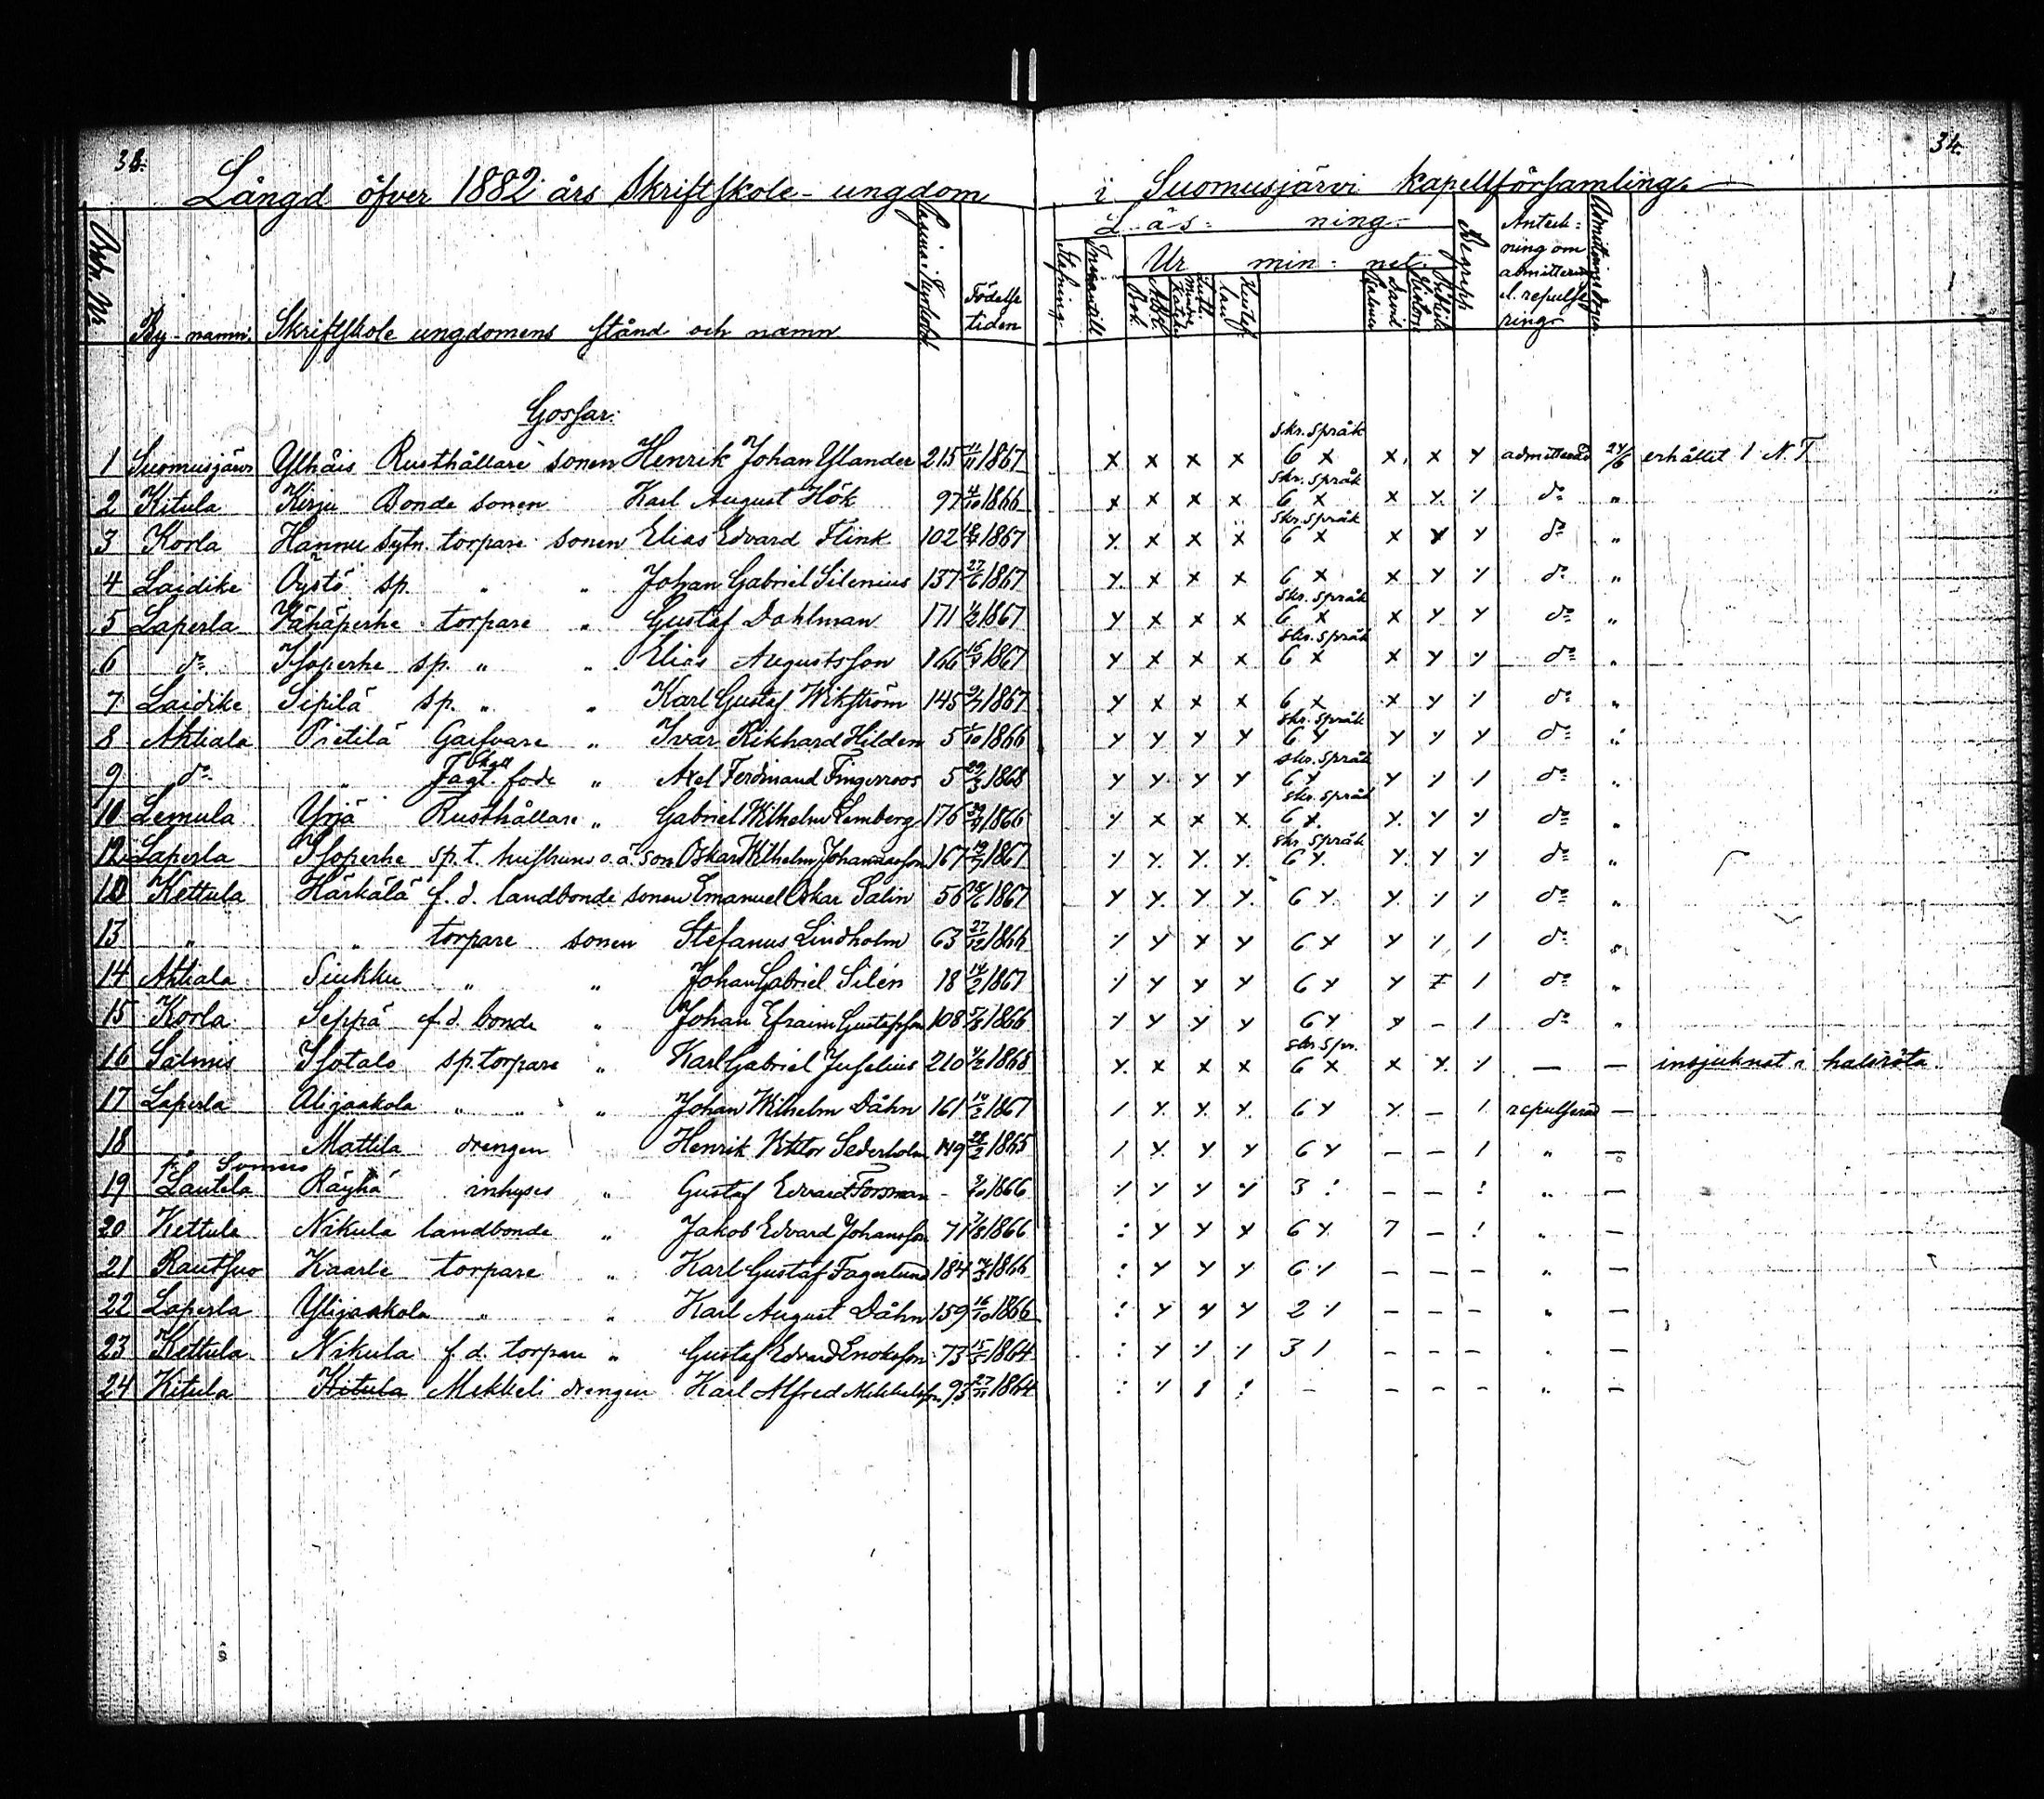 33. 34.
Längd öfver 1882 års Skriftskole-ungdom i Suomusjärvi kapellförsamling.
Läs- ning.
Ur min- net.
Ordn. Nr By-namn. Skriftskole ungdomens stånd och namn. Födelse tiden Stafning Innantill Abc Bok. Luth. mindre Katekes Hustaf lan Davids Psalmer Biblisk Historia Begrepp Anteck- ning om admittering l. repulse ring.
Gossar:
1 Suomusjärvi Ylhäis Rusthållare sonen Henrik Johan Ylander 215 11/11 1867 x x x x skr. språk 6 x x. x y admitterad 24/6 erhållit 1 N.T
2 Kitula Kirju Bonde sonen Karl August Hök 97 4/10 1866 x x x x skr. språk 6 x x y. ⁒ do „
3 Korla Hannu sytn. torpare sonen Elias Edvard Flink 102 1867 y. x x x skr. språk 6 x x y y do „
4 Laidike Öystö sp. „ „ Johan Gabriel Silenius 137 27/6 1867 y. x x x 6 x x y ⁒ do „
5 Laperla Vähäperhe torpare „ Gustaf Dahlman 171 1/2 1867 y x x x skr. språk 6 x x y y do „
6 do Isoperhe sp. „ „ Elias Augustsson 166 1867 y x x x skr. språk 6 x x y ⁒ do „
7 Laidike Sipilä sp. „ „ Karl Gustaf Wikström 145 1867 y x x x 6 x x y ⁒ do „
8 Ahtiala Pietilä Garfvare „ Ivar Rikhard Hilden 5 1/10 1866 y y y y skr. språk 6 y y y y do „
9 do „ Jagt. fode „ Axel Ferdinand Fingerroos 5 29/3 1868 y y. y y skr. språk 6 y y ⁒ ⁒ do „
10 Lemula Yrjä Rusthållare „ Gabriel Wilhelm Lemberg 176 1866 ⁒ x x x. skr. språk 6 x. y. y y do „
12 Laperla Isoperhe sp. t. hustruns o.ä. son Oskar Wilhelm Johannesson 167 1867 ⁒ y. y. y. skr. språk 6 y. y. y y do „
Kettula Härkälä f.d. landbonde sonen Emanuel Oskar Salin 56 1867 y y. y y. 6 y. y. ⁒ ⁒ do „
13 „ „ torpare sonen Stefanus Lindholm 63 27/12 1866 ⁒ y y y 6 y y ⁒ / do „
14 Ahtiala Siukku „ „ Johan Gabriel Silén 18 14/2 1867 ⁒ y y y 6 y y / do „
15 Korla Seppä f.d. bonde „ Johan Efraim Gustafsson 108 5/8 1866 ⁒ y y y 6 y y – / do „
16 Salmis Isotalo sp. torpare „ Karl Gabriel Juselius 210 1868 y. x x x skr. spr. 6 x x y. ⁒ — — insjuknat i halsröta.
17 Laperla Alijaakola „ „ „ Johan Wilhelm Dåhn 161 14/2 1867 / y. y. y. 6 y y. – / repulserad —
18 „ Mattila drengen Henrik Viktor Sederholm 149 28/2 1865 / y. y y 6 y – – / „ —
fr. Somero
19 Lautela Räyhä inhyses „ Gustaf Edvard Forsman – 1866 ⁒ y y y 3 : – – : „ —
20 Kettula Nikula landbonde „ Jakob Edvard Johansson 71 7/8 1866 : y y y 6 y. 7 – ! „ —
21 Rautsuo Kaarle torpare „ Karl Gustaf Fagerlund 184 1866 : y y y 6 ⁒ – – – „ —
22 Laperla Ylijaakola „ „ Karl August Dåhn 159 16/10 1866 : y y y 2 ⁒ – – – „ —
23 Kettula Nikula f.d. torpare „ Gustaf Edvard Enoksson 73 1864 : y ⁒ ⁒ 3 / – – – „ —
24 Kitula Kitula Mikkeli drengen Karl Alfred Mikkelsson 93 1864 : ⁒ – – – – „ —